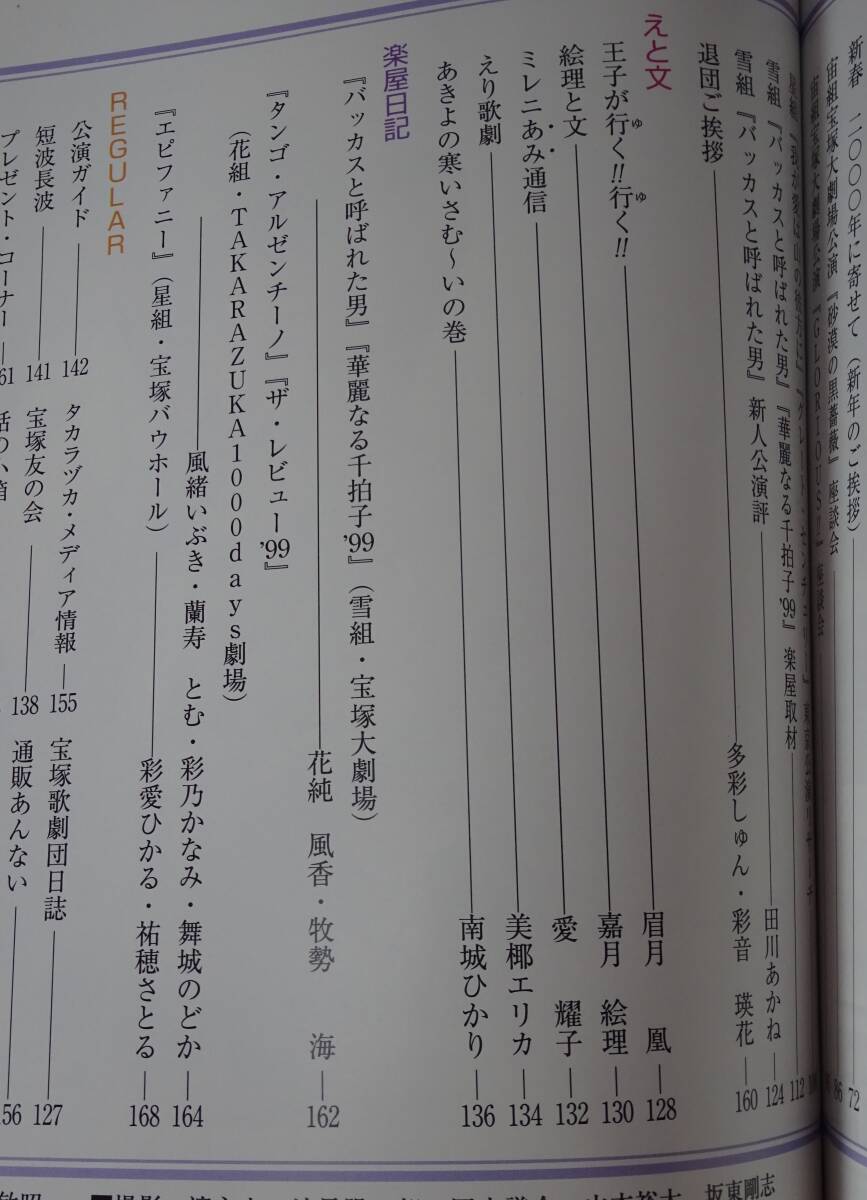 新春 二〇〇〇年に寄せて（新年のご挨拶）72
宙組宝塚大劇場公演『砂漠の黒薔薇』座談会 86
宙組宝塚大劇場公演『GLORIOUS!!』座談会
星組『我が愛は山の彼方に』
雪組『バッカスと呼ばれた男』『華麗なる千拍子'99』楽屋取材 112
雪組『バッカスと呼ばれた男』新人公演評 田川あかね 124
退団ご挨拶 多彩しゅん・彩音 瑛花 160
えと文
王子が行く!!行く!! 眉月 凰 128
ゆ ゆ
絵理と文 嘉月 絵理 130
ミレニあみ通信 愛 耀子 132
えり歌劇 美椰エリカ 134
あきよの寒いさむ〜いの巻 南城ひかり 136
楽屋日記
『バッカスと呼ばれた男』『華麗なる千拍子'99』（雪組・宝塚大劇場）
花純 風香・牧勢 海 162
『タンゴ・アルゼンチーノ』『ザ・レビュー'99』
（花組・TAKARAZUKA1000days劇場）
風緒いぶき・蘭寿 とむ・彩乃かなみ・舞城のどか 164
『エピファニー』（星組・宝塚バウホール） 彩愛ひかる・祐穂さとる 168
REGULAR
公演ガイド 142
タカラヅカ・メディア情報 155
宝塚歌劇団日誌 127
短波長波 141
宝塚友の会 138
通販あんない 156
プレゼント・コーナー 161
坂東剛志